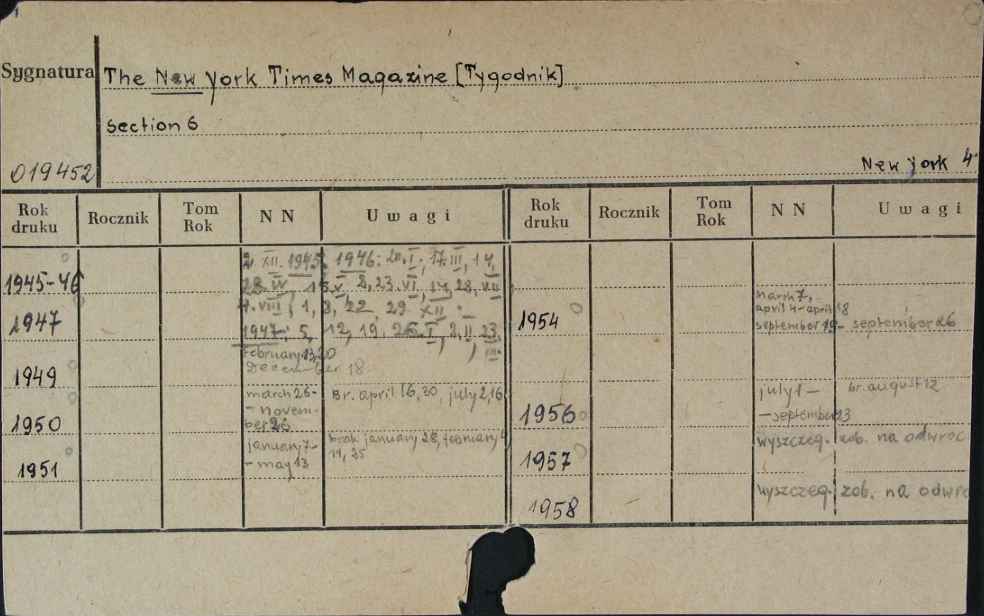 Sygnatura The New York Times Magazine [Tygodnik]
Section 6
019452 New York 4
Rok druku Rocznik Tom Rok NN Uwagi Rok druku Rocznik Tom Rok NN Uwagi
1945-46 2. XII. 1945, 1946: 20. I; 17. III, 14,
28. IV 2, 23. VI, 14, 28, VII
4. VIII; 1, 8, 22 29 XII.
1947 1947: 5, 12, 19, 26. I, 2, II 23,
III.
1949 february 13, 20
December 18
1950 march 26- Br. april 16, 30, july 2, 16
- novem-
ber 26
1951 january 7- brak january 28, february 4
- may 13 11, 25
1954 march 7,
april 4-april 18
september 19- september 26
1956 july 1 - br. august 12
- september 23
1957 wyszczeg. zob. na odwroc
1958 wyszczeg. zob. na odwro